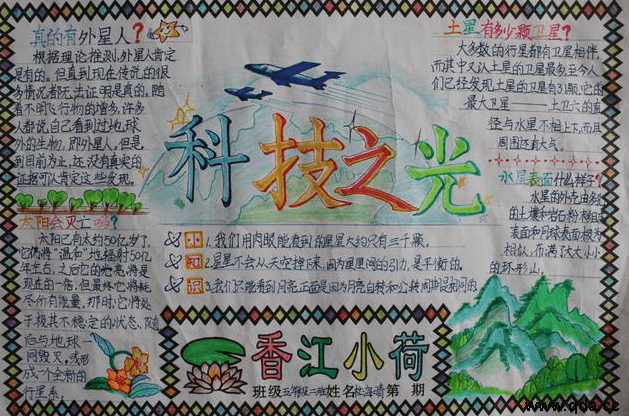 真的有外星人?
根据理论推测,外星人肯定
是有的。但直到现在传说的很
多情况都无法证明是真的。随
着不明飞行物的增多,许多
人都说,自己看到过地球
外的生物,即外星人。但是,
到目前为止,还没有真实的
证据可以肯定这些发现。
太阳会灭亡吗?
太阳已有大约50亿岁了,
它仍将“温和”地辐射50亿
年左右。之后它的
现在的一倍,但最终它将耗
尽所有能量,那时,它将处
于极其不稳定的状态,随
后与地球一
同毁灭,或形
成一个全新的
行星系。
科技之光
小 1.我们用肉眼能看到的星星大约只有三千颗。
知 2.星星不会从天空掉下来,因为星星间的引力,是平衡的。
识 3.我们只能看到月亮正面是因为月亮自转和公转周期是相同的
香江小荷
班级五年级二班姓名 第 期
土星有多少颗卫星?
大多数的行星都有卫星相伴,
而其中又以土星的卫星最多至今人
们已经发现土星的卫星有31颗,它的
最大卫星——土卫六的直
径与水星不相上下,而且
周围还有大气。
水星表面什么样子?
水星的外壳由多
的土壤和岩石粉末组成
表面和月球表面极为
相似,布满了大大小小
的环形山。